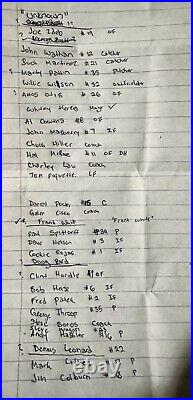 "Unknown"
? Joe Zdeb #19 OF
? George Brett
John Wathan #12 Catcher
Buck Martinez #21 Catcher
Marty Pattin #33 Pitcher
Willie Wilson #32 outfielder
? Amos Otis #26 OF
Whitey Herzog Mngr
Al Cowens #18 OF
John Mayberry #7 IF
Chuck Hiller Coach
Hal McRae #11 OF DH
Charley Lau Coach
Tom Poquette LF
Darrell Porter #15 C
Galen Cisco Coach
Frank White "Frank White"
Paul Splittorff #34 P
Dave Nelson #3 IF
Cookie Rojas #1 IF
Doug Bird
Clint Hurdle #10F
Bob Heise #6 IF
Fred Patek #2 IF
George Throop #35 P
Steve Boros Coach
Andy Hassler #16 P
? Dennis Leonard #22
Mark P
Jim Colborn P